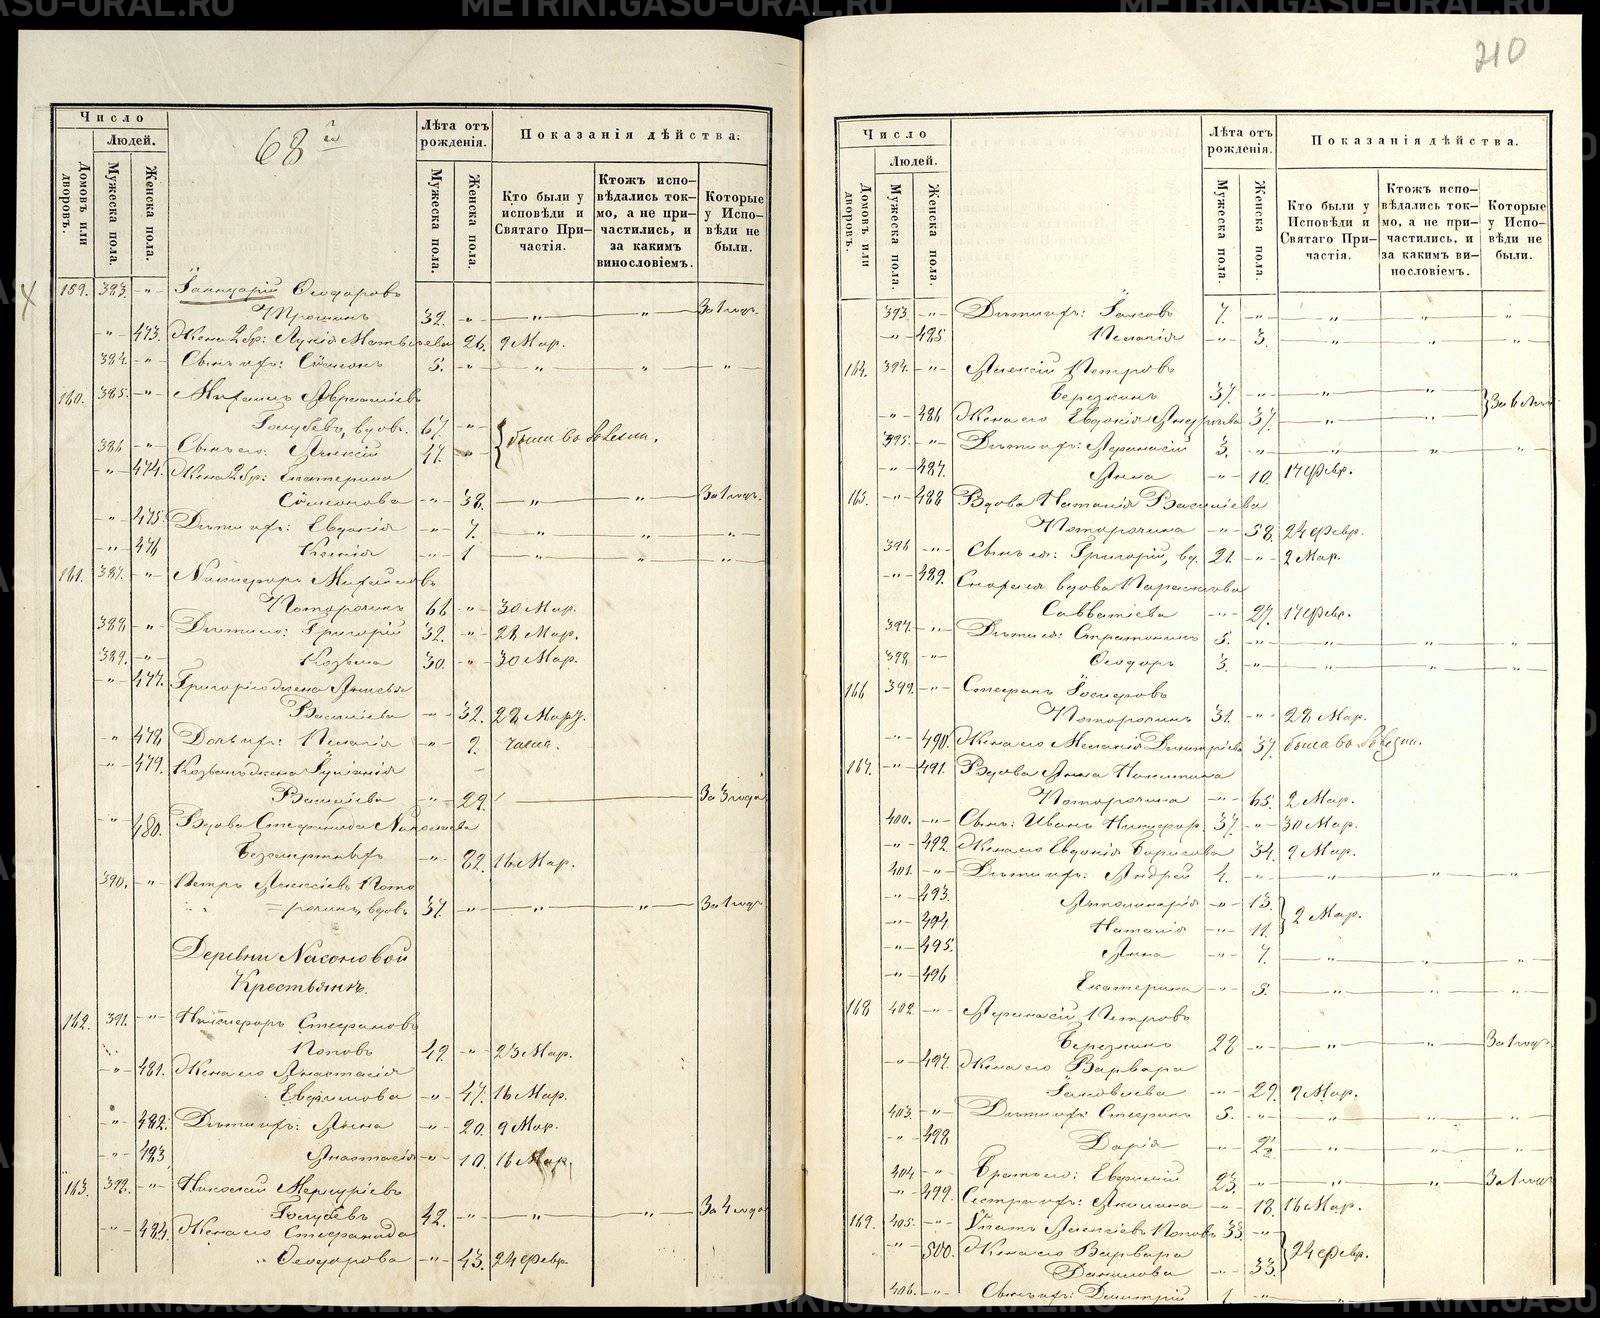 METRIKI.GASU-URAL.RU
210
68й
Число
Людей.
Домовъ или дворовъ.
Мужеска пола.
Женска пола.
Лѣта отъ рожденія.
Мужеска пола.
Женска пола.
Показанія дѣйства:
Кто были у исповѣди и Святаго Причастія.
Ктожъ исповѣдались токмо, а не причастились, и за какимъ винословіемъ.
Которые у Исповѣди не были.
159. 383. -"- Їаннуарій Ѳеодоровъ
Трошинъ 32. -"- " " За 1 годъ.
-"- 473. Жена 2 бр: Лукія Матвѣева 26. 9 Мар.
384. -"- Сынъ ихъ: Сѷмеонъ 5. -"- " " "
160. 385. -"- Михаилъ Аврамовъ
Голубевъ, вдовъ. 67. -"-
386 -"- Сынъ его: Алексій 47. -"- были во болѣзни.
-"- 474. Жена 2 бр: Екатерина
Сѷмеонова -"- 38. " " За 1 годъ.
-"- 475. Дѣти ихъ: Евдокія -"- 7. " " "
-"- 476 Ксенія -"- 1 " " "
161. 387. -"- Никифоръ Михайловъ
Поторочинъ 66 -"- 30 Мар.
388 -"- Дѣти его: Григорій 32. -"- 28 Мар.
389. -"- Козьма 30. -"- 30 Мар.
-"- 477. Григорія жена
Василіева -"- 32. 28 Мар.
-"- 478 Дочь ихъ: Пелагія -"- 9.
-"- 479. Козьмы жена Іуліанія
Василіева -"- 29. За 3 года
-"- 480. Вдова Стефанида Николаева
Безсмертныхъ -"- 82. 16 Мар.
390. -"- Петръ Алексіевъ Пото
=рочинъ, вдовъ 37. -"- " " За 1 годъ.
Деревни Насоновой
Крестьяне.
162. 391. -"- Никифоръ Стефановъ
Поповъ 49. -"- 23 Мар.
-"- 481. Жена его Анастасія
Евфимова -"- 47. 16 Мар.
-"- 482. Дѣти ихъ: Анна -"- 20. 9 Мар.
-"- 483 Анастасія -"- 10. 16 Мар.
163. 392. -"- Николай Меркуріевъ
Голубевъ 42. -"- " " За 4 года
-"- 484. Жена его Стефанида
Ѳеодорова -"- 43. 24 Февр.
Число
Людей.
Домовъ или дворовъ.
Мужеска пола.
Женска пола.
Лѣта отъ рожденія.
Мужеска пола.
Женска пола.
Показанія дѣйства.
Кто были у Исповѣди и Святаго Причастія.
Ктожъ исповѣдались токмо, а не причастились, и за какимъ винословіемъ.
Которые у Исповѣди не были.
393. -"- Дѣти ихъ: Їаковъ 7. -"- " " "
-"- 485. Пелагія -"- 3. " " "
164. 394. -"- Алексій Петровъ
Березкинъ 37. -"- " " За 6 лѣтъ
-"- 486 Жена его Евдокія 37. "
395. -"- Дѣти ихъ: Афанасій 3. -"- " " "
-"- 487. Анна -"- 10. 17 Февр.
165. -"- 488 Вдова Наталія Василіева
Поторочина -"- 58. 24 Февр.
396 -"- Сынъ ея: Григорій, вд. 21. -"- 2 Мар.
-"- 489. Снохa ея вдова Параскева
Савватіева -"- 27. 17 Февр.
397. -"- Дѣти ея: Стратоникъ 5. -"- " "
398 -"- Ѳеодоръ 3. -"- " "
166 399. -"- Стефанъ Їосифовъ
Поторочинъ 31. -"- 28 Мар.
-"- 490. Жена его Меланія Димитріева 37. была во болѣзни.
167. -"- 491. Вдова Анна Никитина
Поторочина -"- 65. 2 Мар.
400. -"- Сынъ: Иванъ Никифор. 37. -"- 30 Мар.
-"- 492. Жена его Евдокія Борисова 34. 9 Мар.
401. -"- Дѣти ихъ: Андрей 4. -"- " "
-"- 493. Аполлинарія -"- 13.
-"- 494 Наталія -"- 11. 2 Мар.
-"- 495. Анна -"- 7. " "
-"- 496 Екатерина -"- 5. " "
168 402. -"- Афанасій Петровъ
Березкинъ 28 -"- " " За 1 годъ.
-"- 497. Жена его Варвара
Їаковлева -"- 29. 9 Мар.
403. -"- Дѣти ихъ: Стефанъ 5. -"- " "
-"- 498 Дарія -"- 2½ " "
404 -"- Братъ его: Евфимій 23. -"- " " За 1 годъ
-"- 499. Сестра ихъ: Акилина -"- 18. 16 Мар.
169. 405. -"- Ѵпатъ Алексіевъ Поповъ 33. -"-
-"- 500. Жена его Варвара 24 Февр.
Данилова -"- 33.
406. -"- Сынъ ихъ: Димитрій 1. -"-